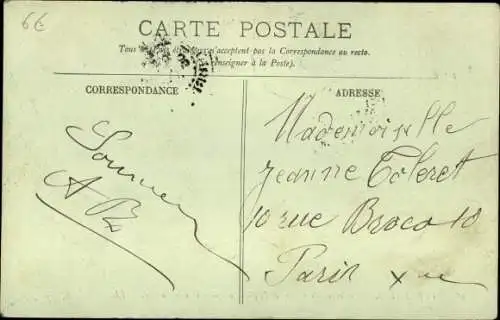 6€
CARTE POSTALE
Tous les pays étrangers n'acceptent pas la Correspondance au recto.
(renseigner à la Poste).
CORRESPONDANCE
ADRESSE
Souvenir
A B
Mademoiselle
Jeanne Coleret
10 rue Broca 10
Paris